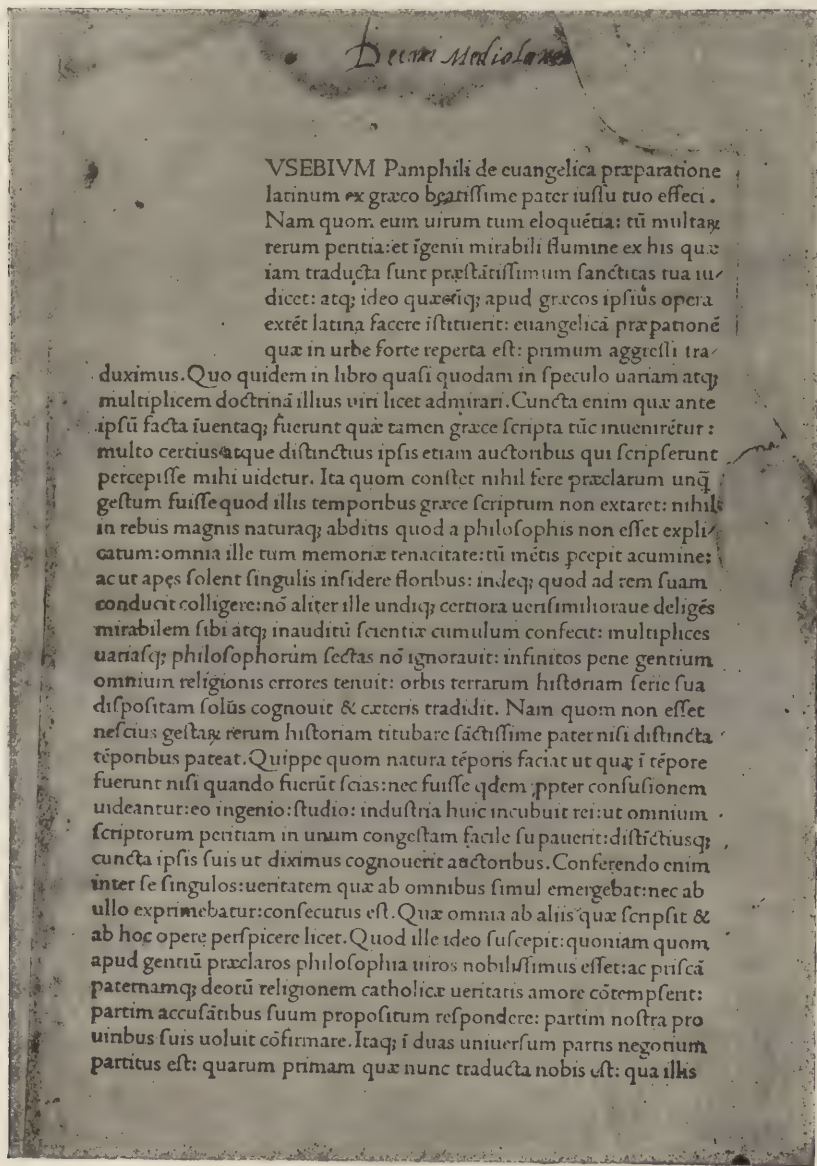 Decem Mediolane
VSEBIVM Pamphili de euangelica præparatione
latinum ex græco beatiſſime pater iuſſu tuo effeci.
Nam quom eum uirum tum eloquētia: tū multaꝝ
rerum peritia: et īgenii mirabili flumine ex his quæ
iam traducta ſunt præſtātiſſimum ſanctitas tua iu-
dicet: atq; ideo quæcūq; apud græcos ipſius opera
extēt latina facere iſtituerit: euangelicā præpationē
quæ in urbe forte reperta eſt: primum aggreſſi tra-
duximus. Quo quidem in libro quaſi quodam in ſpeculo uariam atq;
multiplicem doctrinā illius uiri licet admirari. Cuncta enim quæ ante
ipſū facta iuentaq; fuerunt quæ tamen græce ſcripta tūc inuenirētur:
multo certius atque diſtinctius ipſis etiam auctoribus qui ſcripſerunt
percepiſſe mihi uidetur. Ita quom conſtet nihil fere præclarum unq̄
geſtum fuiſſe quod illis temporibus græce ſcriptum non extaret: nihil
in rebus magnis naturaq; abditis quod a philoſophis non eſſet expli-
catum: omnia ille tum memoriæ tenacitate: tū mētis ꝑcepit acumine:
ac ut apes ſolent ſingulis inſidere floribus: indeq; quod ad rem ſuam
conducit colligere: nō aliter ille undiq; certiora ueriſimilioraue deligēs
mirabilem ſibi atq; inauditū ſcientiæ cumulum confecit: multiplices
uariaſq; philoſophorum ſectas nō ignorauit: infinitos pene gentium
omnium religionis errores tenuit: orbis terrarum hiſtoriam ſerie ſua
diſpoſitam ſolus cognouit & cæteris tradidit. Nam quom non eſſet
neſcius geſtaꝝ rerum hiſtoriam titubare ſāctiſſime pater niſi diſtincta
tēporibus pateat. Quippe quom natura tēporis faciat ut quæ ī tēpore
fuerunt niſi quando fuerūt ſcias: nec fuiſſe qdem ꝓpter confuſionem
uideantur: eo ingenio: ſtudio: induſtria huic incubuit rei: ut omnium
ſcriptorum peritiam in unum congeſtam facile ſupauerit: diſtīctiuſq;
cuncta ipſis ſuis ut diximus cognouerit auctoribus. Conferendo enim
inter ſe ſingulos: ueritatem quæ ab omnibus ſimul emergebat: nec ab
ullo exprimebatur: conſecutus eſt. Quæ omnia ab aliis quæ ſcripſit &
ab hoc opere perſpicere licet. Quod ille ideo ſuſcepit: quoniam quom
apud gentiū præclaros philoſophia uiros nobiliſſimus eſſet: ac priſcā
paternamq; deorū religionem catholicæ ueritatis amore cōtempſerit:
partim accuſātibus ſuum propoſitum reſpondere: partim noſtra pro
uiribus ſuis uoluit cōfirmare. Itaq; ī duas uniuerſum partis negotium
partitus eſt: quarum primam quæ nunc traducta nobis eſt: qua illis